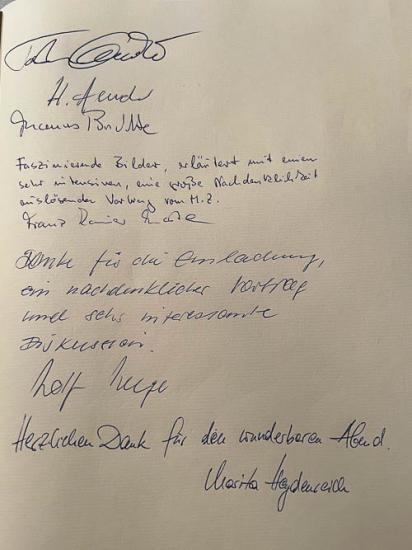 H.
Faszinierende Bilder, erläutert mit einem
sehr intensiven, eine große Nachdenklichkeit
auslösenden Vortrag vom M.Z.
Franz Rainer
Danke für die Einladung,
ein nachdenklicher Vortrag
und sehr interessante
Diskussion.
Rolf
Herzlichen Dank für den wunderbaren Abend.
Marita Heydenreich